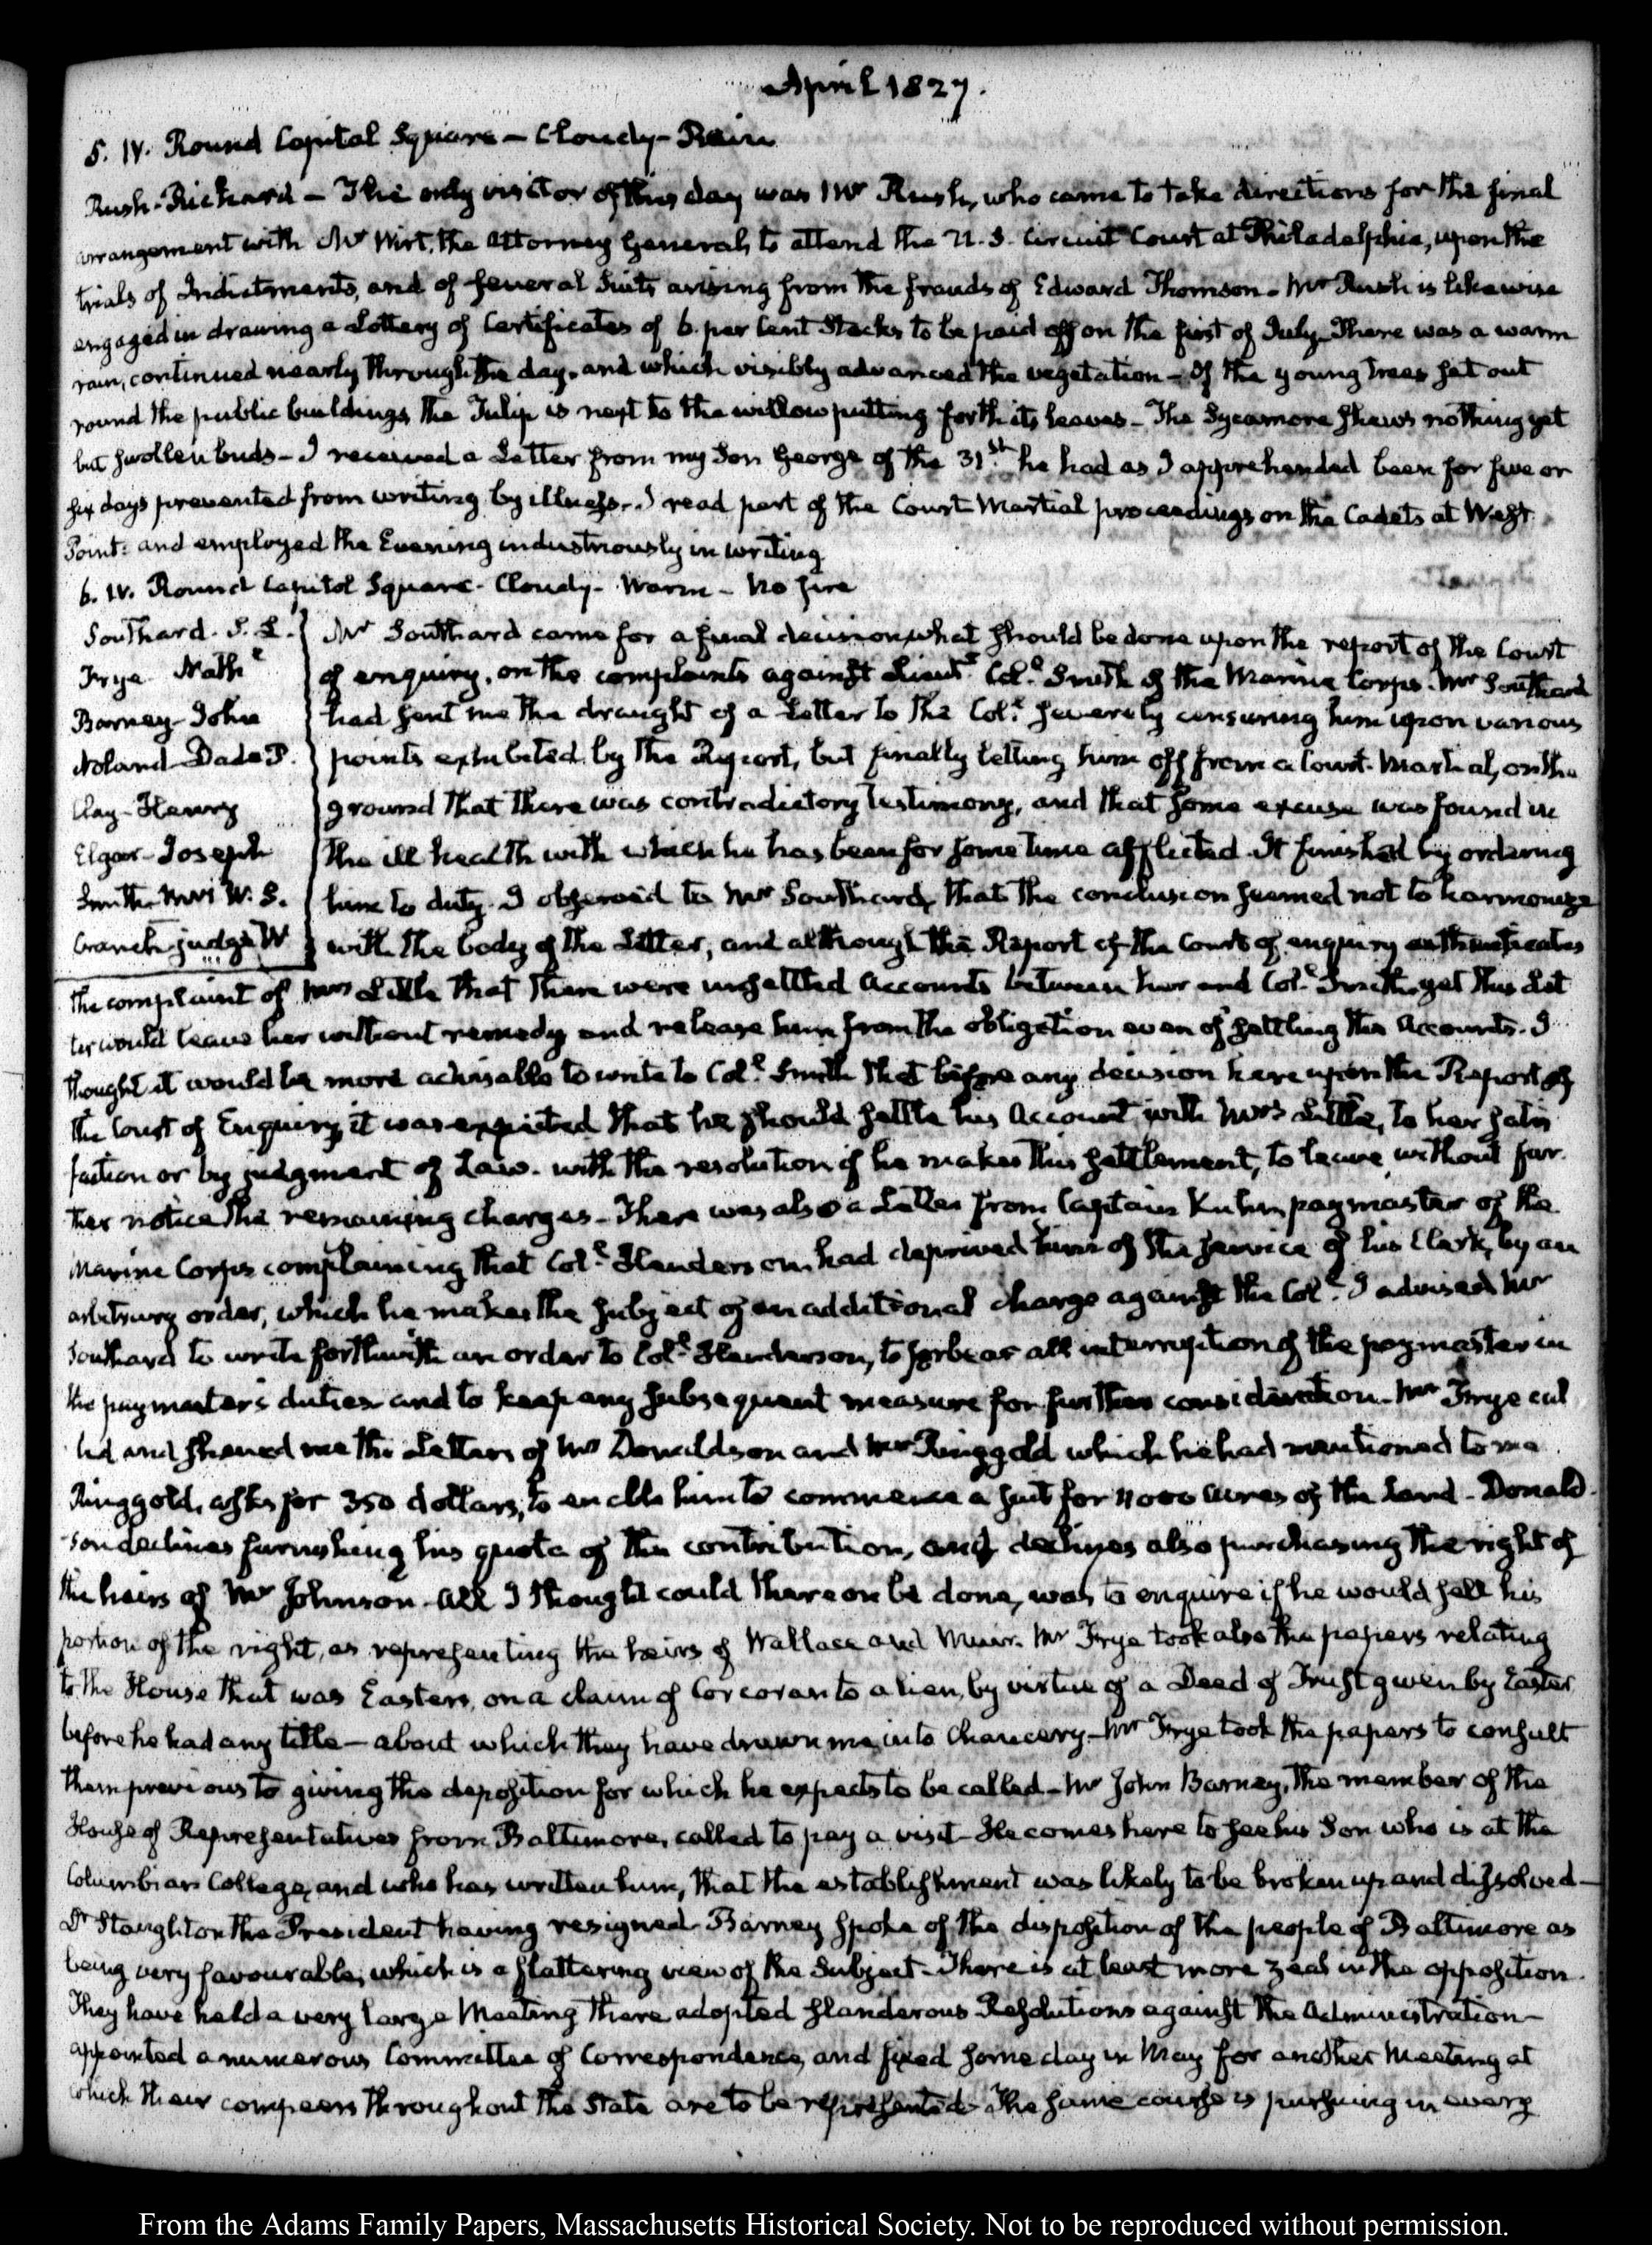 April 1827.
5. IV. Round Capitol Square – Cloudy – Rain
Rush. Richard – The only visitor of this day was Mr Rush, who came to take directions for the final
arrangement with Mr Wirt, the Attorney General, to attend the U. S. Circuit Court at Philadelphia, upon the
trials of Indictments, and of several Suits arising from the frauds of Edward Thomson – Mr Rush is likewise
engaged in drawing a Lottery of Certificates of 6. per Cent Stocks to be paid off on the first of July – There was a warm
rain, continued nearly through the day, and which visibly advanced the vegetation – Of the young trees set out
round the public buildings the Tulip is next to the willow putting forth its leaves – The Sycamore shews nothing yet
but swollen buds – I received a Letter from my Son George of the 31st. he had as I apprehended been for five or
six days prevented from writing by illness. I read part of the Court Martial proceedings on the Cadets at West
Point: and employed the Evening industriously in writing
6. IV. Round Capitol Square. Cloudy – Warm – No fire
Southard. S. L.
Frye Nathl
Barney – John
Noland – Dade P.
Clay – Henry
Elgar – Joseph
Smith Mrs W. S.
Cranch judge W
Mr Southard came for a final decision, what should be done upon the report of the Court
of enquiry, on the complaints against Lieutt. Coll. Smith of the Marine Corps. Mr Southard
had sent me the draught of a Letter to the Coll. severely censuring him upon various
points exhibited by the Report, but finally letting him off from a Court-Martial, on the
ground that there was contradictory testimony, and that some excuse was found in
the ill health with which he has been for some time afflicted. It finished by ordering
him to duty. I observed to Mr Southard, that the conclusion seemed not to harmonize
with the body of the Letter, and although the Report of the Court of enquiry authenticates
the complaint of Mrs Little that there were unsettled Accounts between her and Coll. Smith, yet this Let
ter would leave her without remedy and release him from the obligation even of settling the Accounts. I
thought it would be more advisable to write to Coll. Smith that before any decision here upon the Report of
the Court of Enquiry, it was expected that he should settle his Account with Mrs Little, to her satis
faction or by judgment of Law. with the resolution if he makes this settlement, to leave without fur
ther notice the remaining charges – There was also a Letter from Captain Kuhn, paymaster of the
Marine Corps complaining that Coll. Henderson had deprived him of the service of his Clerk, by an
arbitrary order, which he makes the subject of an additional charge against the Coll. I advised Mr
Southard to write forthwith an order to Coll. Henderson, to forbear all interruption of the paymaster in
the paymaster's duties and to keep any subsequent measure for further consideration. Mr Frye cal
led and shewed me the Letters of Mr Donaldson and Mr Ringgold which he had mentioned to me
Ringgold, asks for 350 dollars, to enable him to commence a suit for 11000 Acres of the Land – Donald
son declines furnishing his quota of the contribution, and declines also purchasing the right of
the heirs of Mr Johnson. All I thought could thereon be done, was to enquire if he would sell his
portion of the right, as representing the heirs of Wallace and Muir. Mr Frye took also the papers relating
to the House that was Easters, on a claim of Corcoran to a lien, by virtue of a Deed of Trust given by Easter
before he had any title – about which they have drawn me into Chancery – Mr Frye took the papers to consult
them previous to giving the deposition for which he expects to be called – Mr John Barney, the member of the
House of Representatives from Baltimore, called to pay a visit – He comes here to see his Son who is at the
Columbian College, and who has written him, that the establishment was likely to be broken up and dissolved –
Dr Staughton the President having resigned. Barney spoke of the disposition of the people of Baltimore as
being very favourable, which is a flattering view of the Subject – There is at least more zeal in the opposition.
They have held a very large Meeting there adopted slanderous Resolutions against the Administration –
appointed a numerous Committee of Correspondence, and fixed some day in May for another Meeting at
which their compeers throughout the State are to be represented. The same course is pursuing in every
From the Adams Family Papers, Massachusetts Historical Society. Not to be reproduced without permission.